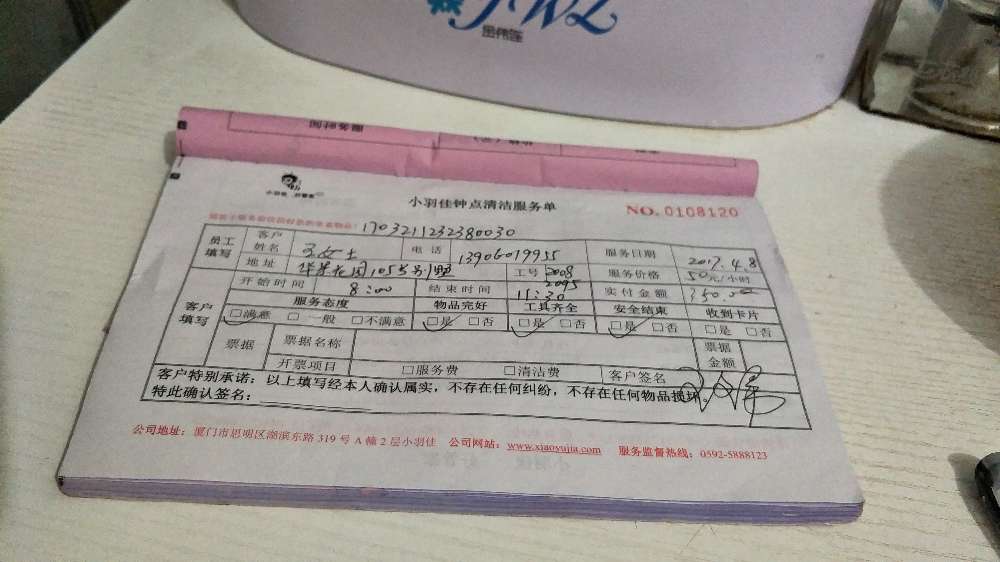 金伟莲
小羽佳钟点清洁服务单
NO. 0108120
1703211232380030
员工填写 客户姓名 电话 13906019955 服务日期 2017.4.8
地址 105号别墅 工号 2008 2095 服务价格 50元/小时
客户填写 开始时间 8:00 结束时间 11:30 实付金额 350.00
服务态度 物品完好 工具齐全 安全结束 收到卡片
□满意 □一般 □不满意 □是 □否 □是 □否 □是 □否 □是 □否
票据 票据名称 票据金额
开票项目 □服务费 □清洁费 客户签名
客户特别承诺：以上填写经本人确认属实，不存在任何纠纷，不存在任何物品损坏。
特此确认签名：
公司地址：厦门市思明区湖滨东路 319 号 A 幢 2 层小羽佳 公司网站：www.xiaoyujia.com 服务监督热线：0592-5888123